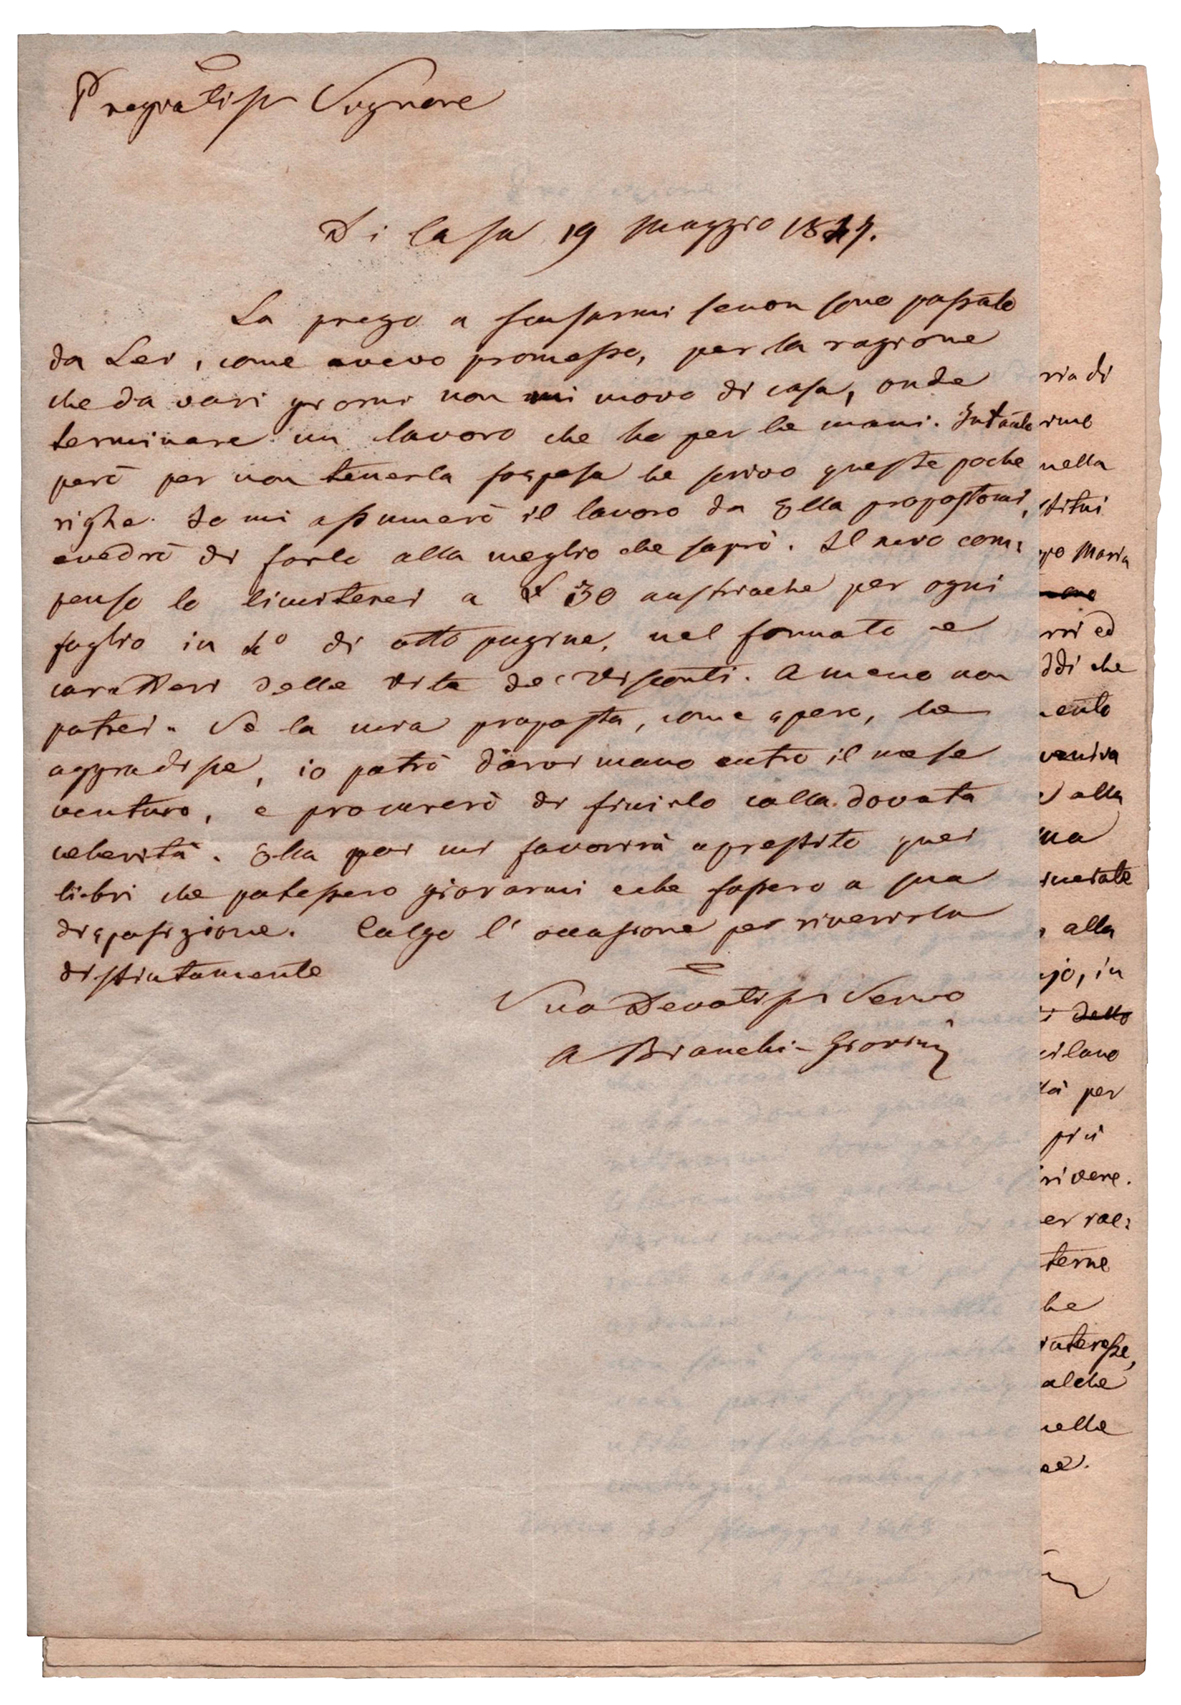 Pregiatiss Signore
Di Casa 19 Maggio 18
La prego a scusarmi se non sono passato
da Lei, come avevo promesso, per la ragione
che da vari giorni non mi movo di casa, onde
terminare un lavoro che ho per le mani. Intanto
però per non tenerla sospesa le scrivo queste poche
righe. Io mi assumerò il lavoro da Ella propostomi,
e vedrò di farlo alla meglio che saprò. Il mio com:
penso lo limiterei a £ 30 austriache per ogni
foglio in 4º di otto pagine, nel formato e
caratteri della vita de' Visconti. A meno non
potrei. Se la mia proposta, come spero, le
aggradisse, io potrò darvi mano entro il mese
venturo, e procurerò di finirlo colla dovuta
celerità. Ella poi mi favorirà a prestito quei
libri che potessero giovarmi e che fossero a sua
disposizione. Colgo l'occasione per riverirla
distintamente
Suo Devotiss Servo
A Bianchi-Giovini
ria di
rime
nella
stitui
ppo Maria
rri ed
ddi che
mento
veniva
alla
ma
inciate
alla
jo, in
dello
milano
per
più
rivere.
er rac:
terne
he
interesse,
alche
nelle